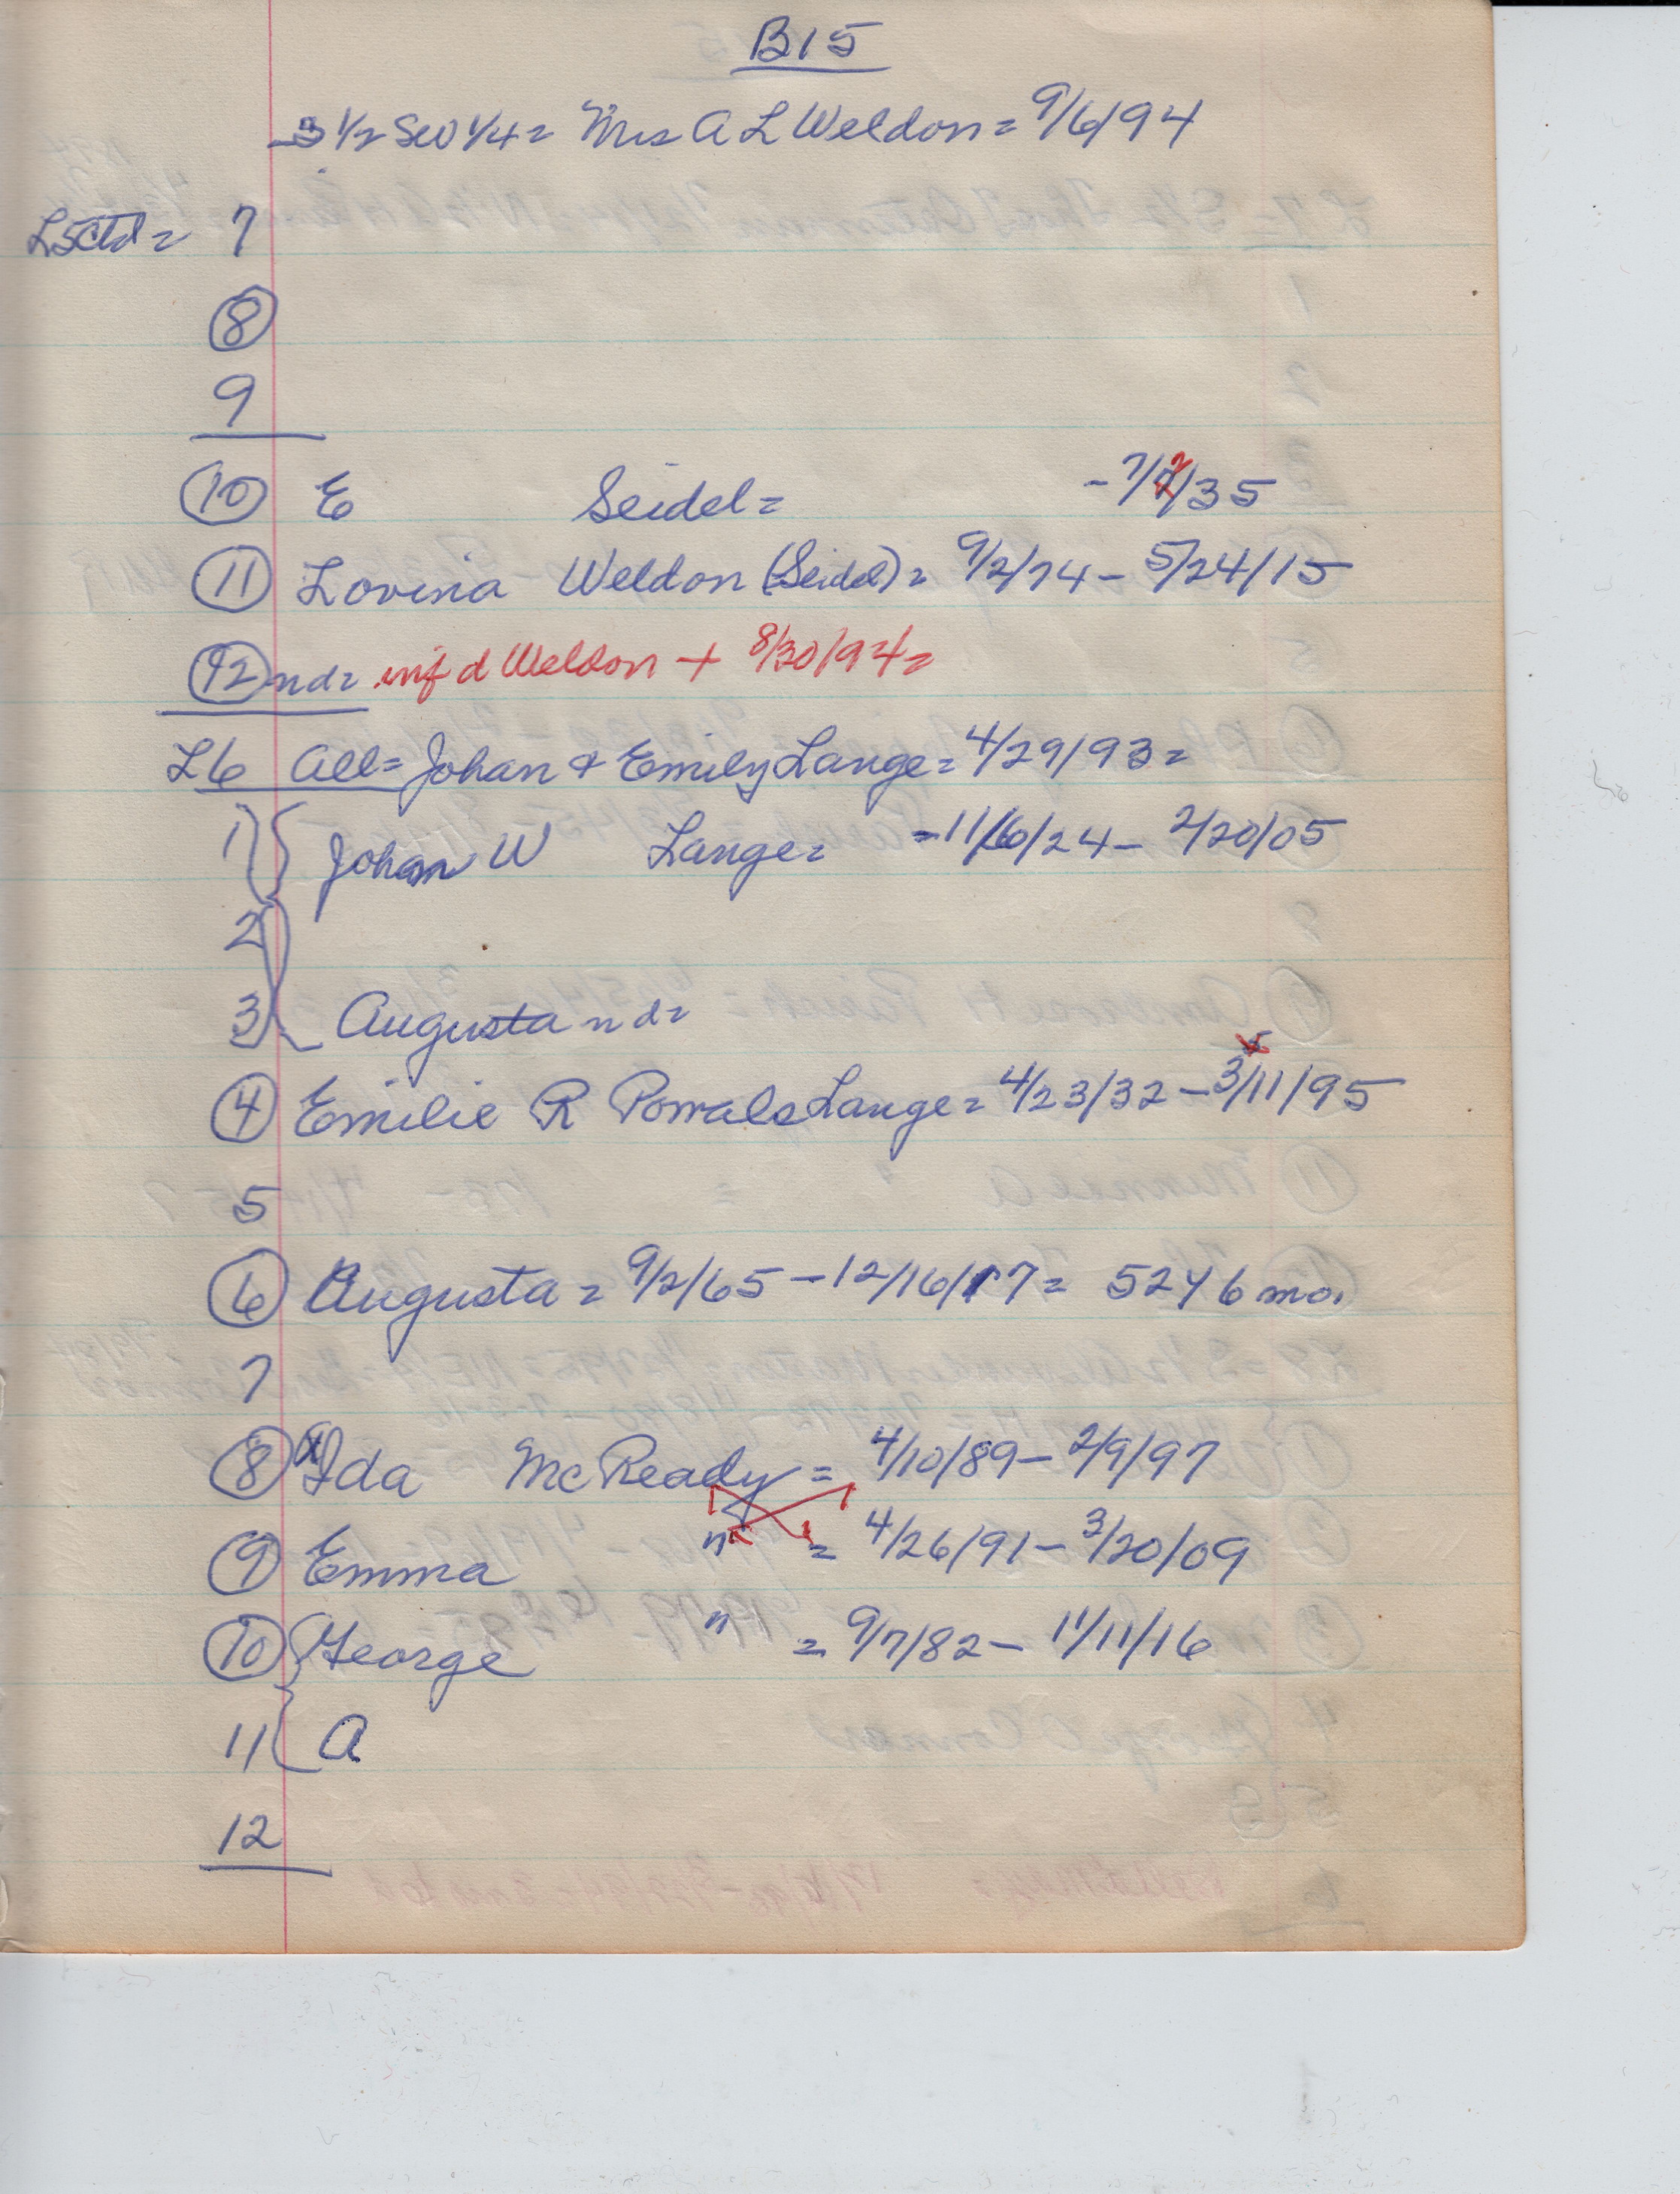 B15
S 1/2 SW 1/4 = Mrs A L Weldon = 9/6/94
L5 Ctd = 7
8
9
10 E Seidel = - 7/2/35
11 Lovina Weldon (Seidel) = 9/2/74 - 5/24/15
12 nd = inf d Weldon + 8/30/94 =
L6 All = Johan & Emily Lange = 4/29/93 =
1 Johan W Lange = - 11/6/24 - 2/20/05
2
3 Augusta nd =
4 Emilie R Lange = 4/23/32 - 3/11/95
5
6 Augusta = 9/2/65 - 12/16/17 = 52 y 6 mo.
7
8 Ida McReady = 4/10/89 - 2/9/97
9 Emma " = 4/26/91 - 3/20/09
10 George " = 9/7/82 - 11/11/16
11 A
12